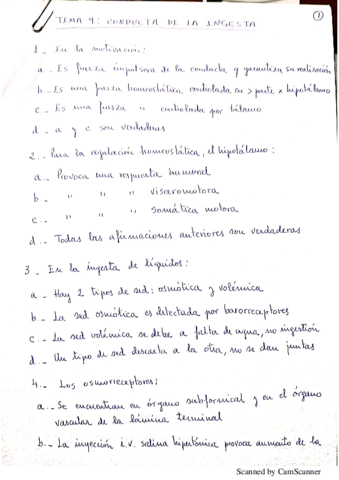 1
TEMA 4: CONDUCTA DE LA INGESTA
1- En la motivación:
a- Es fuerza impulsora de la conducta y garantiza su realización
b- Es una fuerza homeostática, controlada en > parte x hipotálamo
c- Es una fuerza " controlada por tálamo
d- a y c son verdaderas
2- Para la regulación homeostática, el hipotálamo:
a- Provoca una respuesta humoral
b- " " " visceromotora
c- " " " somática motora
d- Todas las afirmaciones anteriores son verdaderas
3- En la ingesta de líquidos:
a- Hay 2 tipos de sed: osmótica y volémica
b- La sed osmótica es detectada por barorreceptores
c- La sed volémica se debe a falta de agua, no ingestión
d- Un tipo de sed descarta a la otra, no se dan juntas
4- Los osmorreceptores:
a- Se encuentran en órgano subfornical y en el órgano
vascular de la lámina terminal
b- La inyección i.v. salina hipertónica provoca aumento de la
Scanned by CamScanner